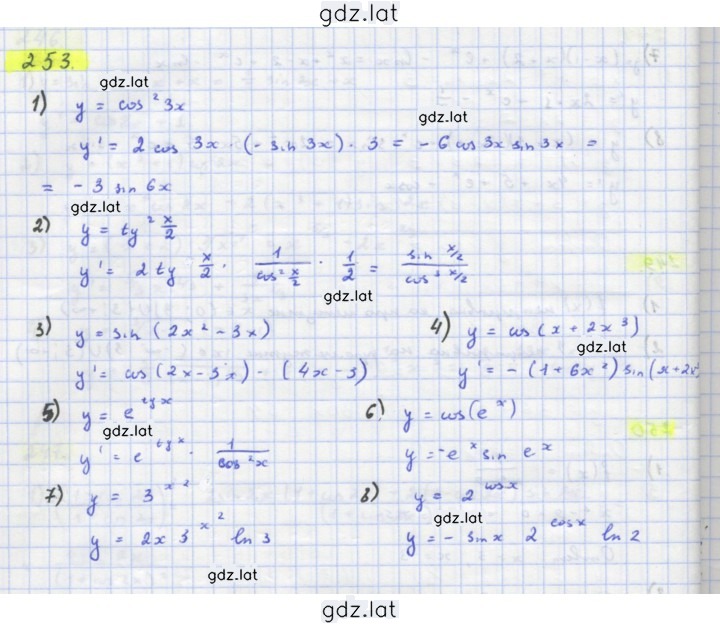 gdz.lat
253.
gdz.lat
1) y = cos² 3x
gdz.lat
y' = 2 cos 3x · (- sin 3x) · 3 = - 6 cos 3x sin 3x =
= - 3 sin 6x
gdz.lat
2) y = tg² x/2
y' = 2 tg x/2 · 1/cos² x/2 · 1/2 = sin x/2 / cos³ x/2
gdz.lat
3) y = sin (2x² - 3x)
4) y = cos (x + 2x³)
gdz.lat
y' = cos (2x - 3x) · (4x - 3)
y' = - (1 + 6x²) sin (x + 2x
5) y = e^tgx
6) y = cos(e^x)
gdz.lat
y' = e^tgx · 1/cos²x
y = - e^x sin e^x
7) y = 3^x²
8) y = 2^cosx
gdz.lat
y = 2x 3^x² ln 3
y = - sin x 2^cosx ln 2
gdz.lat
gdz.lat